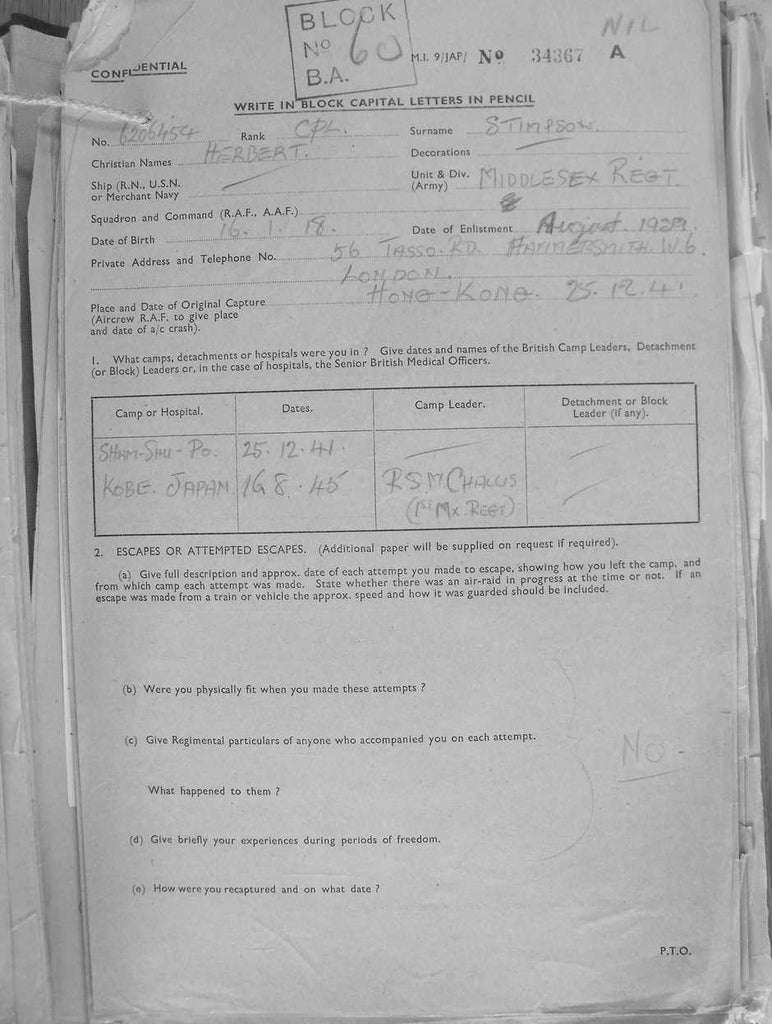 BLOCK
Nº 60
B.A.
NIL
CONFIDENTIAL
M.I. 9/JAP/ Nº 34367 A
WRITE IN BLOCK CAPITAL LETTERS IN PENCIL
No. 6206454 Rank CPL. Surname STIMPSON.
Christian Names HERBERT. Decorations
Ship (R.N., U.S.N. or Merchant Navy
Unit & Div. (Army) MIDDLESEX REGT.
Squadron and Command (R.A.F., A.A.F.)
Date of Birth 16. 1. 18. Date of Enlistment August.
Private Address and Telephone No. 56 TASSO. RD. HAMMERSMITH. W.6.
LONDON.
Place and Date of Original Capture HONG-KONG. 25.12.41
(Aircrew R.A.F. to give place
and date of a/c crash).
1. What camps, detachments or hospitals were you in ? Give dates and names of the British Camp Leaders, Detachment
(or Block) Leaders or, in the case of hospitals, the Senior British Medical Officers.
Camp or Hospital. Dates. Camp Leader. Detachment or Block Leader (if any).
SHAM-SHU-PO. 25.12.41.
KOBE. JAPAN 16 8.45 RSM CHALLIS
MX REGT)
2. ESCAPES OR ATTEMPTED ESCAPES. (Additional paper will be supplied on request if required).
(a) Give full description and approx. date of each attempt you made to escape, showing how you left the camp, and
from which camp each attempt was made. State whether there was an air-raid in progress at the time or not. If an
escape was made from a train or vehicle the approx. speed and how it was guarded should be included.
(b) Were you physically fit when you made these attempts ?
(c) Give Regimental particulars of anyone who accompanied you on each attempt.
NO -
What happened to them ?
(d) Give briefly your experiences during periods of freedom.
(e) How were you recaptured and on what date ?
P.T.O.